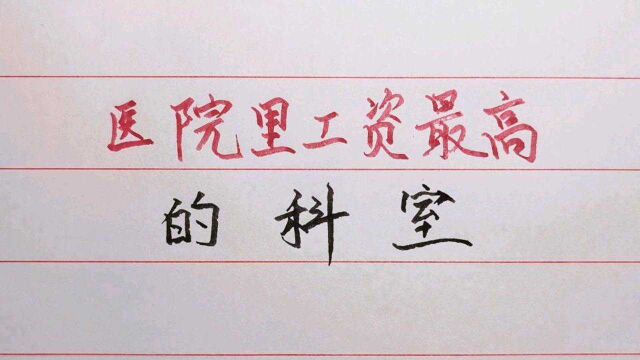 医院里工资最高
的科室